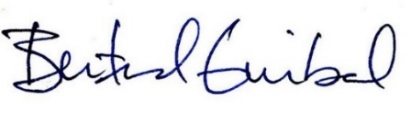 Bertrand Guibal